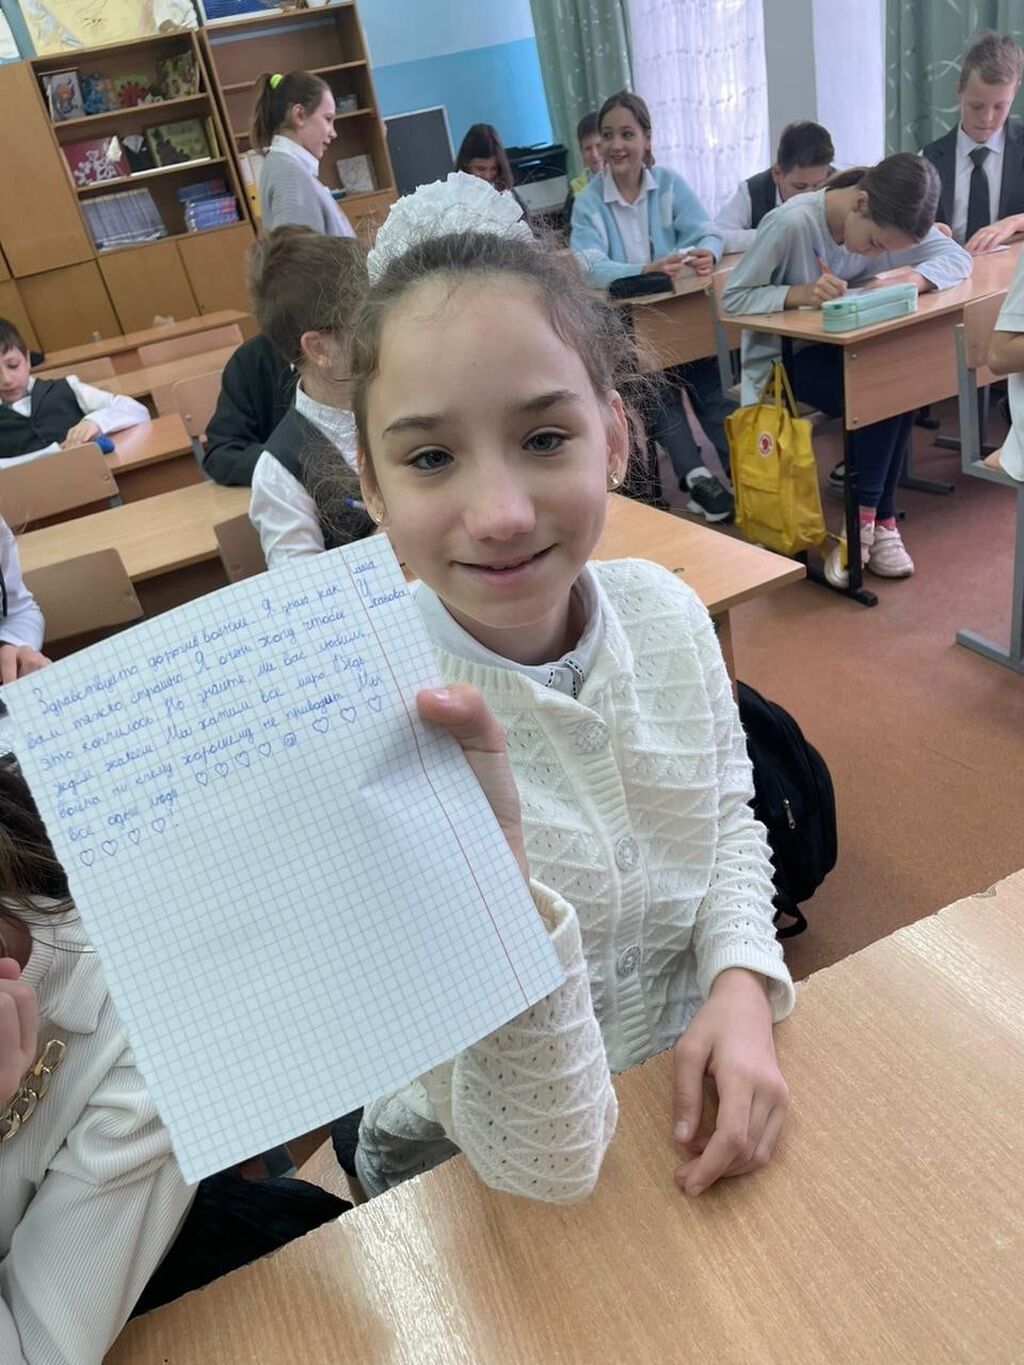 Здравствуйте дорогие военые. Я знаю как
вам тяжко страшно. Я очень хочу чтобы
это кончилось. Но знайте, мы вас любим,
ждём жалеем. Мы хатим все мира. Ведь
война ни к чему хорошему не приводит. Мы
все одни люди ♡ ♡ ♡ ♡ ♡ ♡ ♡
♡ ♡ ♡ ♡!